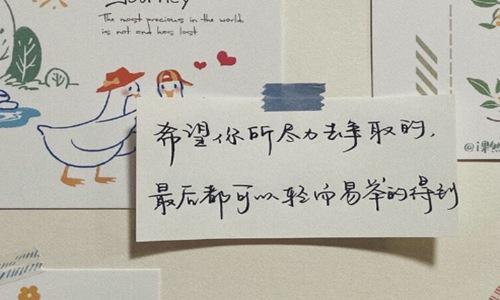 Journey
The most precious in the world
is not and has lost
希望你所尽力去争取的,
最后都可以轻而易举的得到